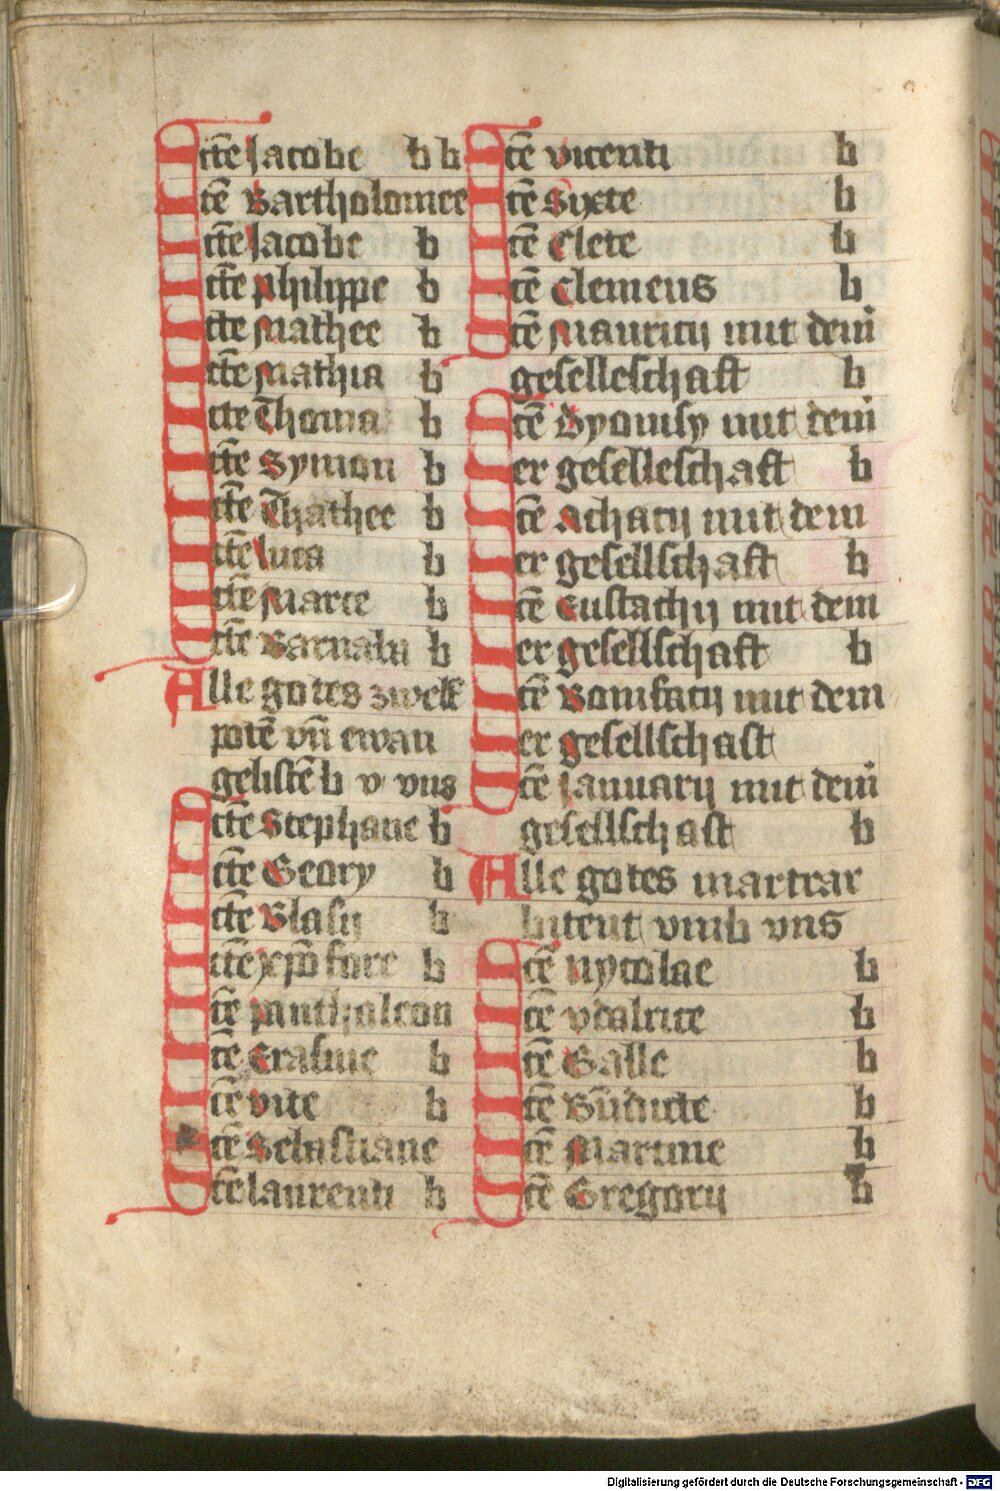 Scte Jacobe b b
Sctē Bartholomee
Sctē Jacobe b
Sctē philippe b
Scte Mathee b
Sctē Mathia b
Scte Thoma b
Sctē Symon b
Sctē Thathee b
Sctē luca b
Sctē Marce b
Sctē Barnaba b
Alle gotes zwelf
potē vn̄ ewan
gelistē b v vns
Sctē Stephane b
Sctē Geory b
Sctē Blasy b
Sctē xp̄o fore b
Sctē panthaleon
Sctē Erasme b
Sctē vite b
Sctē Sebastiane
Sctē laurenti b
Sctē vicenti b
Sctē Sixte b
Sctē Clete b
Sctē Clemens b
Sctē Mauricij mit dein̄
geselleschaft b
Sctē Dyonisy mit dein̄
er geselleschaft b
Sctē Achacij mit dein
er gesellschaft b
Sctē Eustachij mit dein
er gesellschaft b
Sctē Bonifacij mit dein
er gesellschaft
Sctē Januarij mit dein̄
gesellschaft b
Alle gotes martrar
bitent vmb vns
Sctē Nycolae b
Sctē vdalrice b
Sctē Galle b
Sctē Bn̄dicte b
Sctē Martine b
Sctē Gregorij b
Digitalisierung gefördert durch die Deutsche Forschungsgemeinschaft - DFG